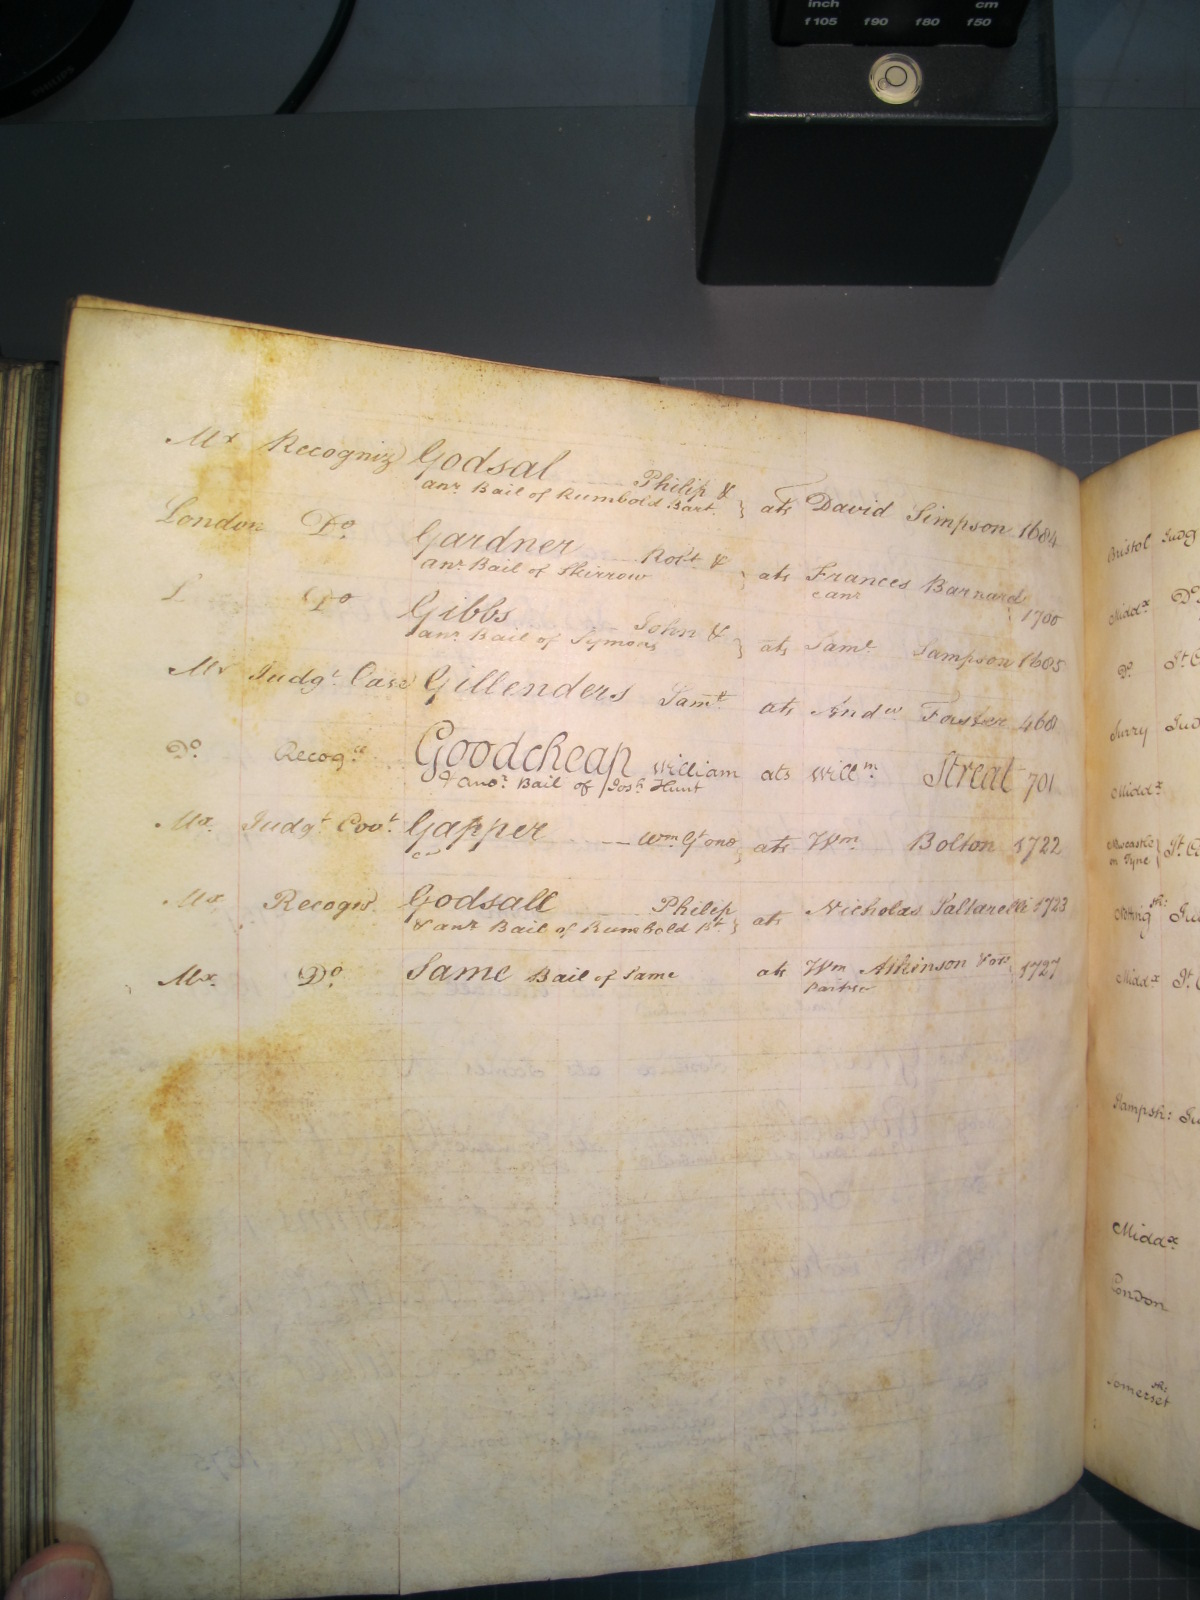 inch cm
f105 f90 f80 f50
PHILIPS
Mx Recogniz Godsal Philip & ats David Simpson 1684
anr Bail of Rumbold Bart.
London Do Gardner Robt & ats Frances Barnard 1700
anr Bail of Skirrow & anr
L Do Gibbs John & ats Saml Sampson 1685
anr Bail of Symons
Mx Judgt Case Gillenders Saml ats Andw Forster 468
Do Recogce Goodcheap William ats Willm Streat 701
& anor Bail of Josh Hunt
Mx Judgt Covt Gapper Wm Gt one ats Wm Bolton 1722
Mx Recogn Godsall Philip ats Nicholas Saltarelli 1723
& anr Bail of Rumbold Bt
Mx Do Same Bail of Same ats Wm Atkinson 1727
Bristol Judg
Middx Do
Do Jt C
Surry Jud
Middx
Newcastle on Tyne Jt C
Notting
Middx Jt C
Hampsh: Ju
Middx
London
Somerset sh: